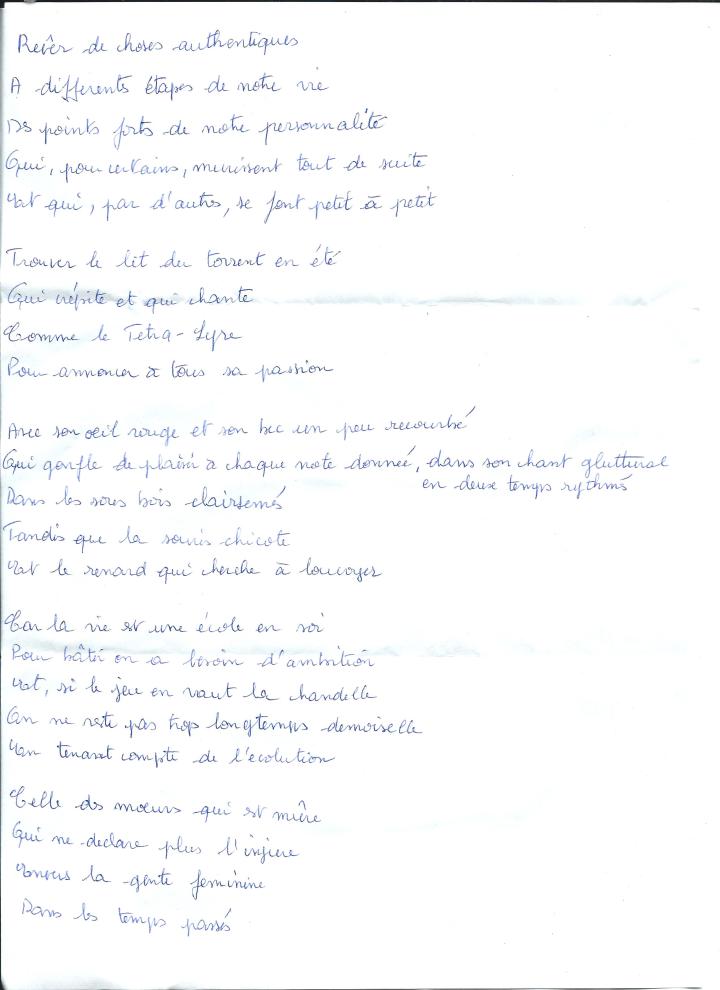 Rêver de choses authentiques
A differents étapes de notre vie
Ds points forts de notre personnalité
Qui, pour certains, munissent tout de suite
Et qui, par d'autres, se font petit à petit
Trouver le lit du torrent en été
Qui crépite et qui chante
Comme le Tetra-Lyre
Pour annoncer à tous sa passion
Avec son oeil rouge et son bec un peu recourbé
Qui gonfle de plaisir à chaque note donneé, dans son chant gluttural
en deux temps rythmés
Dans les sous bois clairsemés
Tandis que la souris chicote
Et le renard qui cherche à louvoyer
Car la vie est une école en soi
Pour bâtir on a besoin d'ambition
Et, si le jeu en vaut la chandelle
On ne reste pas trop longtemps demoiselle
En tenant compte de l'évolution
Celle des moeurs qui est mûre
Qui ne declare plus l'injure
Envers la gente feminine
Dans les temps passés